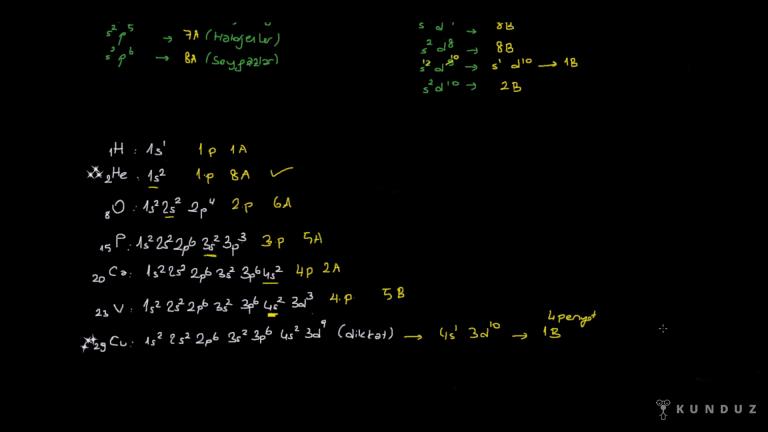 s² p⁵ → 7A (Halojenler)
s² p⁶ → 8A (Soygazlar)
→ 8B
s² d⁸ → 8B
→ s¹ d¹⁰ → 1B
s² d¹⁰ → 2B
₁H : 1s¹ 1.p 1A
₂He : 1s² 1.p 8A ✓
₈O : 1s² 2s² 2p⁴ 2.p 6A
₁₅P : 1s² 2s² 2p⁶ 3s² 3p³ 3.p 5A
₂₀Ca : 1s² 2s² 2p⁶ 3s² 3p⁶ 4s² 4p 2A
₂₃V : 1s² 2s² 2p⁶ 3s² 3p⁶ 4s² 3d³ 4.p 5B
₂₉Cu : 1s² 2s² 2p⁶ 3s² 3p⁶ 4s² 3d⁹ (dikkat) → 4s¹ 3d¹⁰ → 1B
4.periyot
KUNDUZ